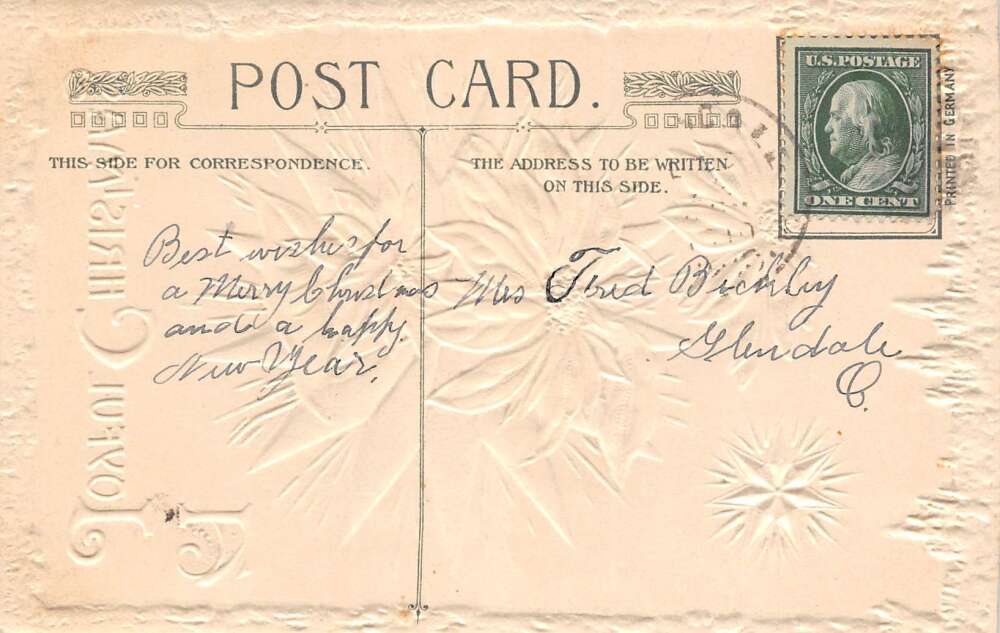 POST CARD.
THIS SIDE FOR CORRESPONDENCE.
THE ADDRESS TO BE WRITTEN
ON THIS SIDE.
U.S. POSTAGE
ONE CENT
PRINTED IN GERMANY
Best wishes for
a Merry Christmas
and a happy
New Year.
Mrs Fred Bickley
Glendale
O.
A JOYFUL CHRISTMAS